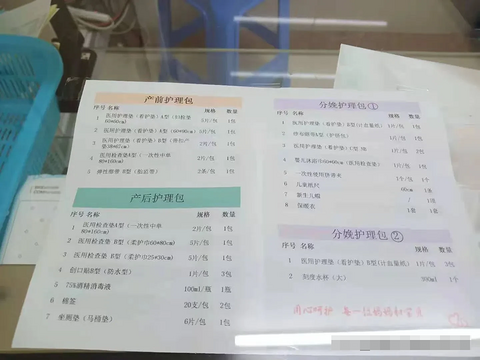 产前护理包
序号 名称 规格 数量
1 医用护理垫（看护垫）A型（妇检垫60*60cm） 1包
2 医用护理垫（看护垫）A型（60*90cm） 1包
3 医用护理垫（看护垫）B型 2片/包 1包
4 医用检查垫A型（一次性中单80*160cm） 2片/包 1包
5 2条/包 1包
产后护理包
序号 名称 规格 数量
1 医用检查垫A型（一次性中单80*160cm） 2片/包 1包
2 医用检查垫 B型（柔护巾60*80cm） 5片/包 1包
3 医用检查垫 B型（柔护巾25*30cm） 5片/包 1包
4 创口贴B型（防水型） 1片/包 3包
5 75%酒精消毒液 100ml/瓶 1瓶
6 棉签 20支/包 2包
7 坐厕垫（马桶垫） 6片/包 1包
分娩护理包①
序号 名称 规格 数量
1 医用护理垫（看护垫）B型（计血量纸） 1片/包 1包
2 1包
3 医用护理垫（看护垫）C型 1包
4 1包
5 1包
6 儿童纸尺 60cm 1条
7 新生儿帽 / 1顶
8 保暖衣 1套 1套
分娩护理包②
序号 名称 规格 数量
1 医用护理垫（看护垫）B型（计血量纸） 1片/包 3包
2 刻度水杯（大） 200ml 1个
用心呵护 每一位妈妈和宝宝